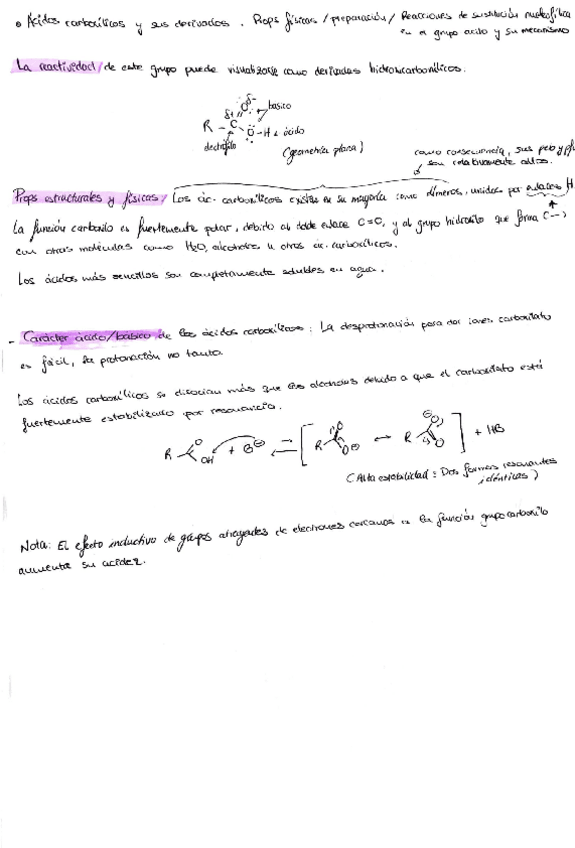 • Ácidos carboxílicos y sus derivados. Props físicas / preparación / Reacciones de sustitución nucleofílica
en el grupo acilo y su mecanismo
La reactividad / de este grupo puede visualizarse como derivados hidroxicarbonílicos.
δ-
δ+ O básico
R - C
O - H ácido
electrófilo
(geometría plana)
como consecuencia, sus peb y pf
son relativamente altos.
Props estructurales y físicas / Los ác. carboxílicos existen en su mayoría como dímeros, unidos por enlaces H.
La función carbonilo es fuertemente polar, debido al doble enlace C=O, y al grupo hidroxilo que forma
con otras moléculas como H2O, alcoholes u otros ác. carboxílicos.
Los ácidos más sencillos son completamente solubles en agua.
- Carácter ácido/básico de los ácidos carboxílicos: La desprotonación para dar iones carboxilato
es fácil, la protonación no tanto.
Los ácidos carboxílicos se disocian más que los alcoholes debido a que el carboxilato está
fuertemente estabilizado por resonancia.
R O OH + B⊖ ⇌ [ R O O⊖ ↔ R O⊖ O ] + HB
(Alta estabilidad: Dos formas resonantes
idénticas)
Nota: El efecto inductivo de grupos atrayentes de electrones cercanos a la función grupo carboxilo
aumenta su acidez.